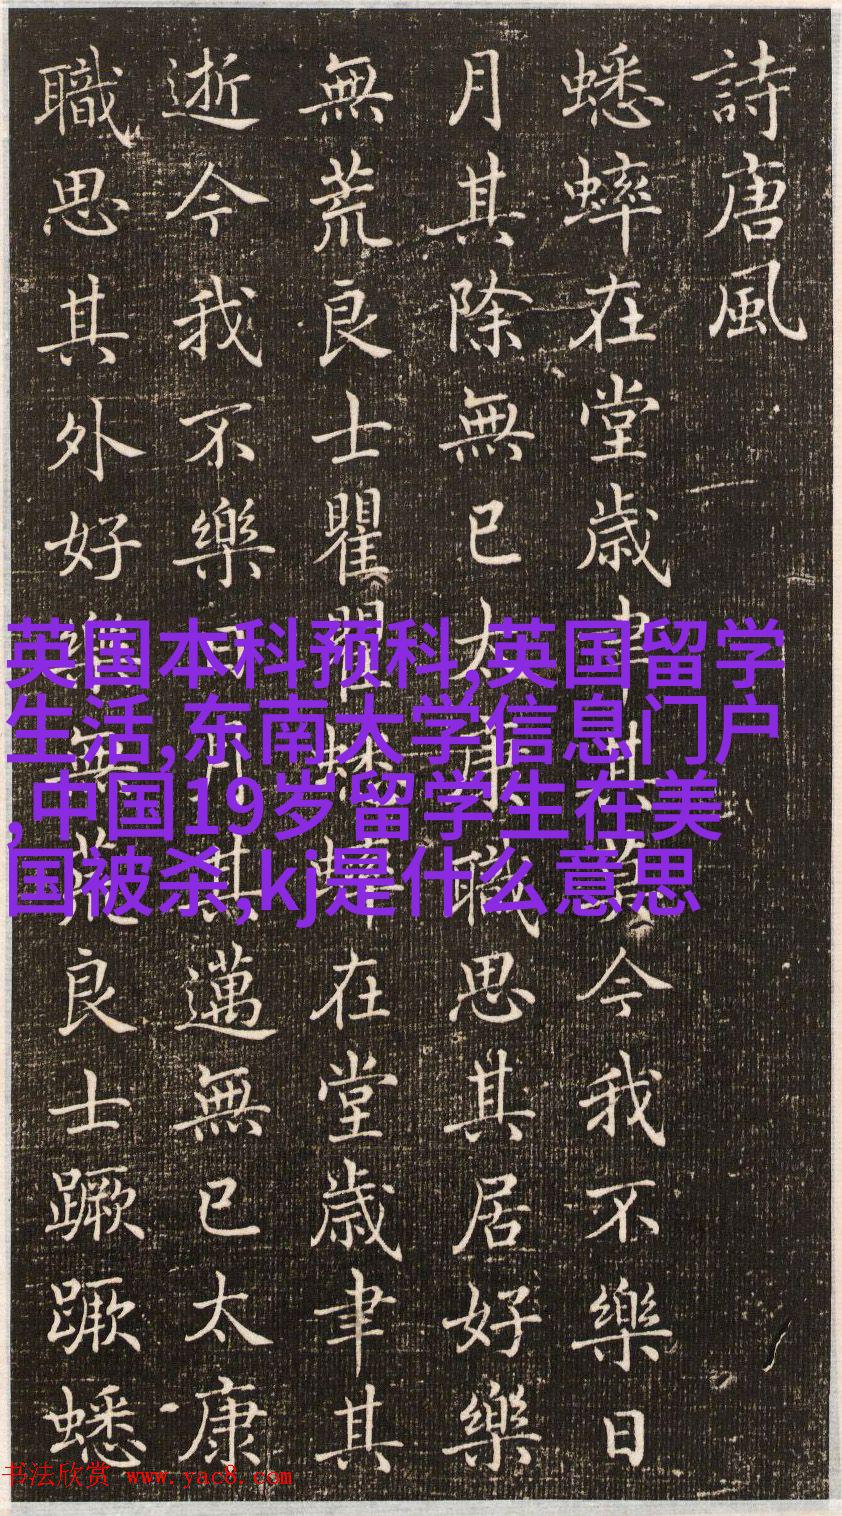 詩唐風
蟋蟀在堂歲聿其莫今我不樂日
月其除無已太康職思其居好樂
無荒良士瞿瞿蟋蟀在堂歲聿其
逝今我不樂日月其邁無已太康
職思其外好樂無荒良士蹶蹶蟋
英国本科预科,英国留学
生活,东南大学信息门户
,中国19岁留学生在美
国被杀,kj是什么意思
书法欣赏 www.yac8.com